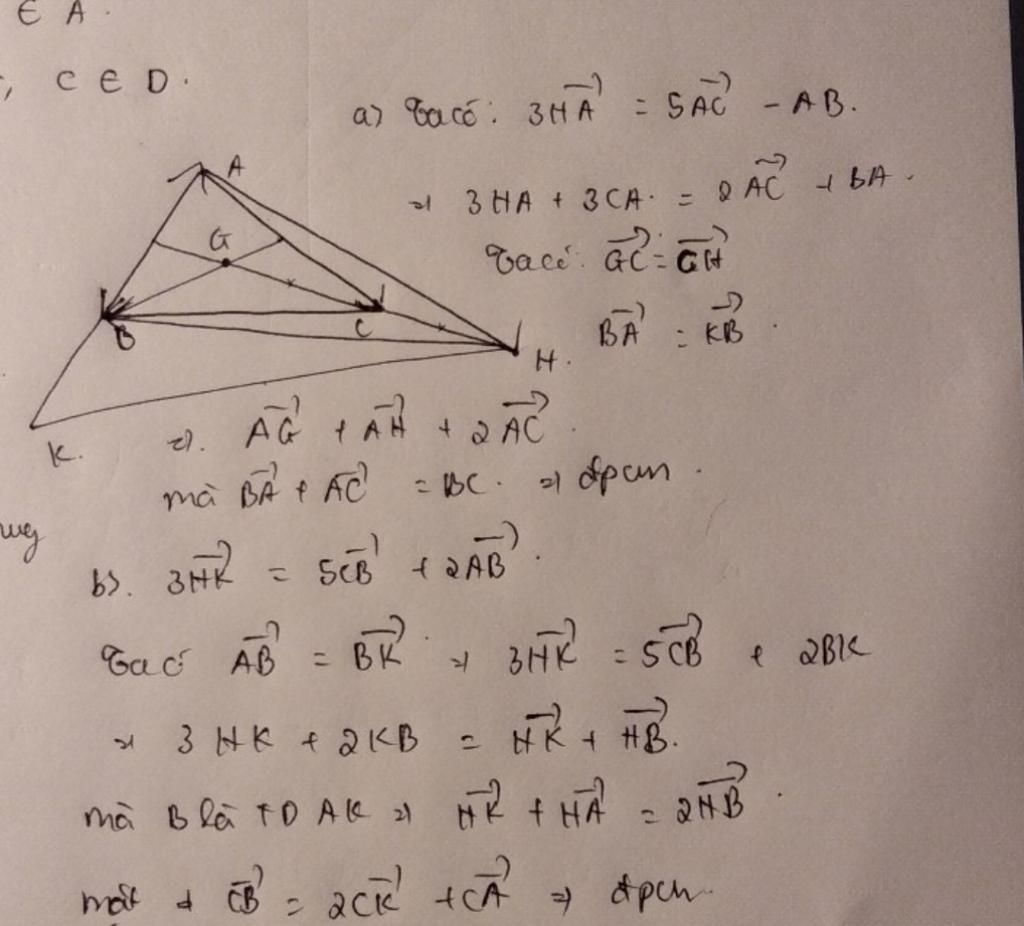 ∈ A.
, C ∈ D.
a) Ta có: 3\overrightarrow{HA} = 5\overrightarrow{AC} - AB.
=> 3HA + 3CA. = 2\overrightarrow{AC} + BA.
Ta có: \overrightarrow{GC} = \overrightarrow{GH}
\overrightarrow{BA} = \overrightarrow{KB}.
A
G
B
C
H.
K.
=). \overrightarrow{AG} + \overrightarrow{AH} + 2\overrightarrow{AC}.
mà \overrightarrow{BA} + \overrightarrow{AC} = BC. => đpcm.
b). 3\overrightarrow{HK} = 5\overrightarrow{CB} + 2\overrightarrow{AB}.
Ta có \overrightarrow{AB} = \overrightarrow{BK} => 3\overrightarrow{HK} = 5\overrightarrow{CB} + 2BK
=> 3HK + 2KB = \overrightarrow{HK} + \overrightarrow{HB}.
mà B là TD AK => \overrightarrow{HK} + \overrightarrow{HA} = 2\overrightarrow{HB}.
\overrightarrow{CB} = 2\overrightarrow{CK} + \overrightarrow{CA} => đpcm.